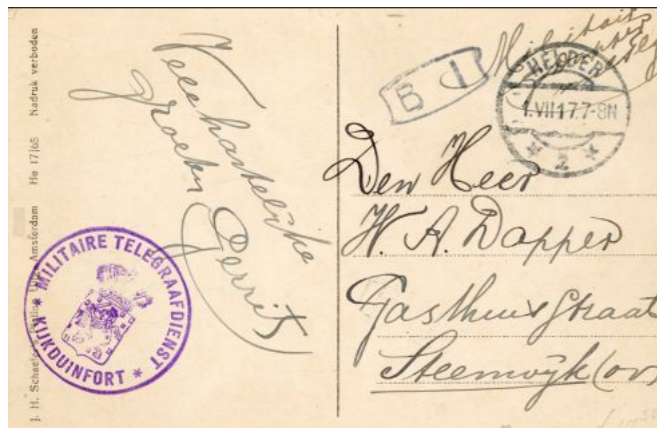 J. H. Schaefer's Amsterdam He 17/65 Nadruk verboden
Veele hartelijke
groeten
Gerrit
MILITAIRE TELEGRAAFDIENST
* KIJKDUINFORT *
B 1
Militair
HELDER
1.VII17.7-8N
* 2 *
Den Heer
W. A. Dapper
Gasthuisstraat
Steenwijk (ov)